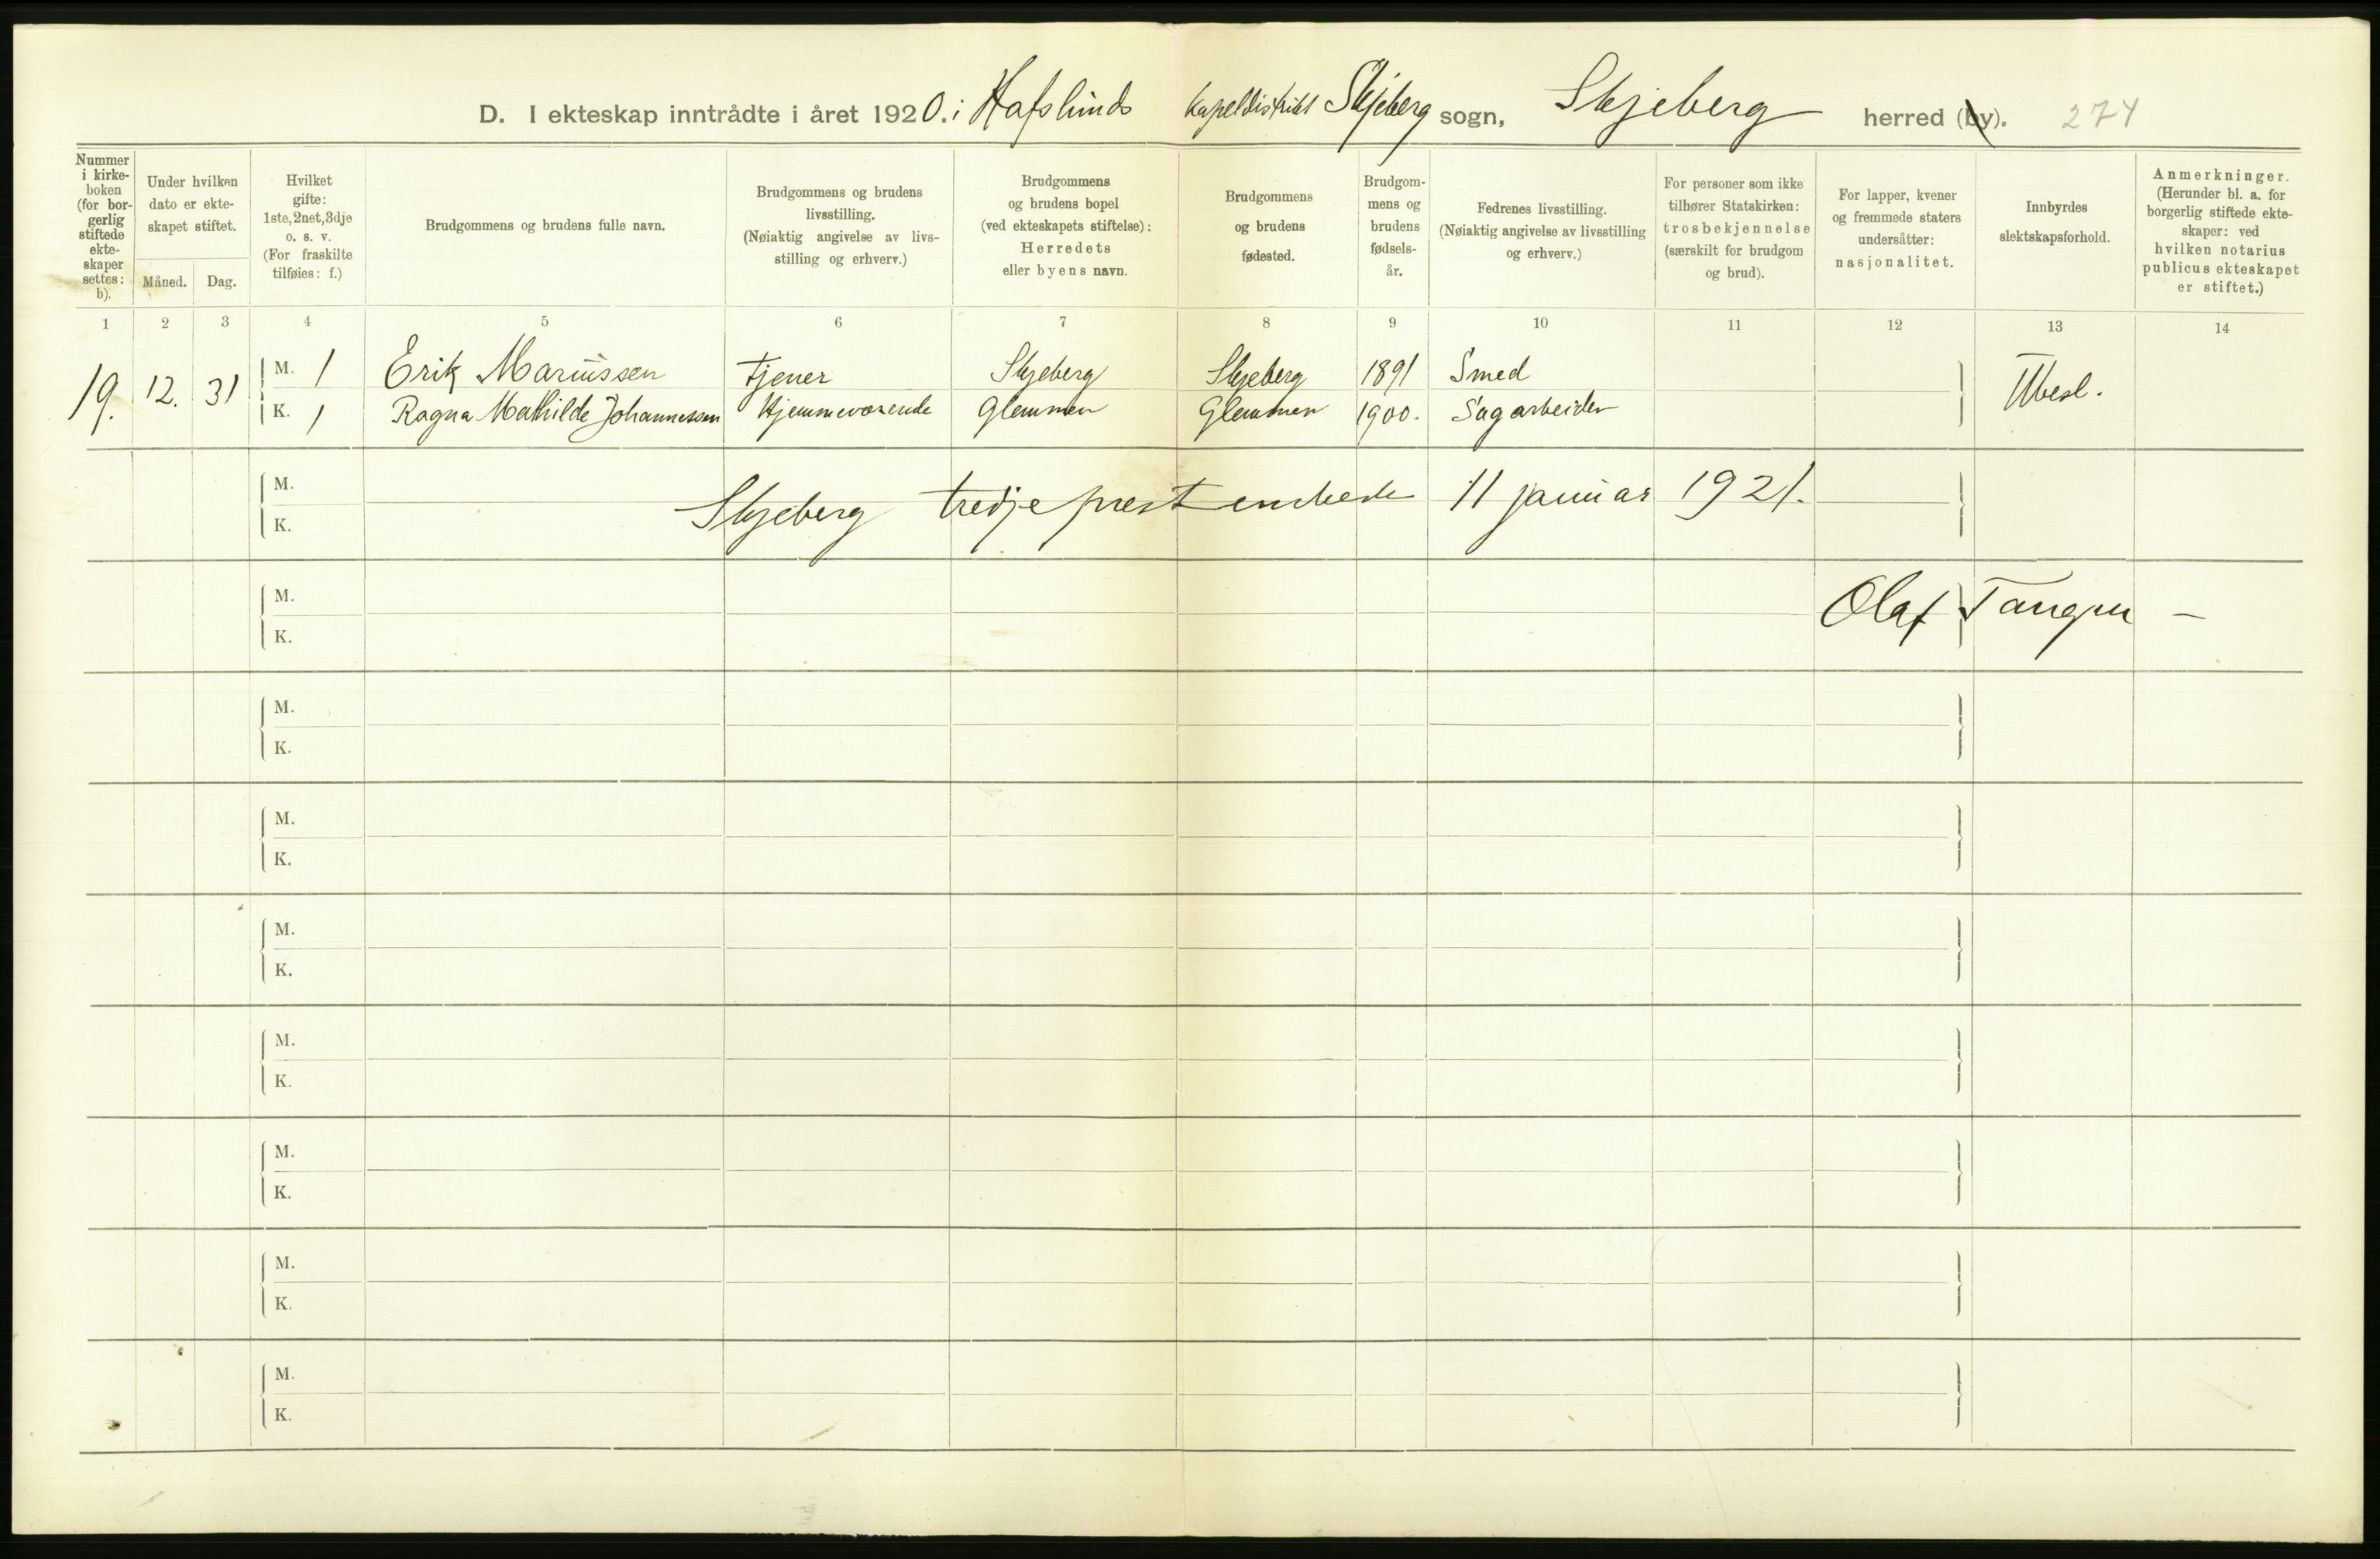 D. I ekteskap inntrådte i året 1920. i Hafslunds kapeldistrikt Skjeberg sogn, Skjeberg herred (by). 274
Nummer
i kirke-
boken
(for bor-
gerlig
stiftede
ekte-
skaper
settes:
b).
Under hvilken
dato er ekte-
skapet stiftet.
Måned. Dag.
Hvilket
gifte:
1ste, 2net, 3dje
o. s. v.
(For fraskilte
tilføies: f.)
Brudgommens og brudens fulle navn.
Brudgommens og brudens
livsstilling.
(Nøiaktig angivelse av livs-
stilling og erhverv.)
Brudgommens
og brudens bopel
(ved ekteskapets stiftelse):
Herredets
eller byens navn.
Brudgommens
og brudens
fødested.
Brudgom-
mens og
brudens
fødsels-
år.
Fedrenes livsstilling.
(Nøiaktig angivelse av livsstilling
og erhverv.)
For personer som ikke
tilhører Statskirken:
trosbekjennelse
(særskilt for brudgom
og brud).
For lapper, kvener
og fremmede staters
undersåtter:
nasjonalitet.
Innbyrdes
slektskapsforhold.
Anmerkninger.
(Herunder bl. a. for
borgerlig stiftede ekte-
skaper: ved
hvilken notarius
publicus ekteskapet
er stiftet.)
1 2 3 4 5 6 7 8 9 10 11 12 13 14
19. 12. 31 M. 1 Erik Mariussen Tjener Skjeberg Skjeberg 1891 Smed Ubesl.
K. 1 Ragna Mathilde Johannessen Hjemmeværende Glemmen Glemmen 1900. Sagarbeider
M.
Skjeberg tredje prestembede 11 januar 1921.
K.
M. Olaf Tangen —
K.
M.
K.
M.
K.
M.
K.
M.
K.
M.
K.
M.
K.
M.
K.